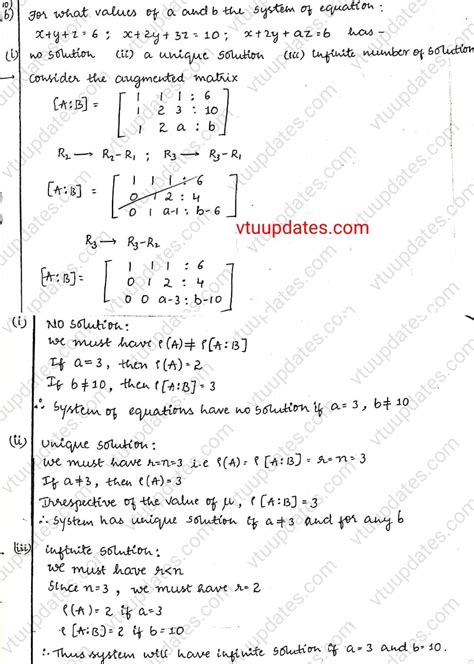 10
b) For what values of a and b the system of equation :
x+y+z=6 ; x+2y+3z=10 ; x+2y+az=b has -
(i) no solution (ii) a unique solution (iii) Infinite number of solution
→ Consider the augmented matrix
[A:B] = [ 1 1 1 : 6
1 2 3 : 10
1 2 a : b ]
R₂ → R₂-R₁ ; R₃ → R₃-R₁
[A:B] = [ 1 1 1 : 6
0 1 2 : 4
0 1 a-1 : b-6 ]
vtuupdates.com
R₃ → R₃-R₂
[A:B] = [ 1 1 1 : 6
0 1 2 : 4
0 0 a-3 : b-10 ]
(i) NO Solution :
we must have ρ(A) ≠ ρ[A:B]
If a=3, then ρ(A)=2
If b≠10, then ρ[A:B]=3
∴ System of equations have no solution if a=3, b≠10
(ii) Unique solution :
we must have r=n=3 i.e ρ(A) = ρ[A:B] = r = n = 3
If a≠3, then ρ(A)=3
Irrespective of the value of μ, ρ[A:B]=3
∴ System has unique solution if a≠3 and for any b
(iii) infinite solution :
we must have r<n
Since n=3, we must have r=2
ρ(A)=2 if a=3
ρ[A:B]=2 if b=10
∴ Thus system will have infinite solution if a=3 and b=10.